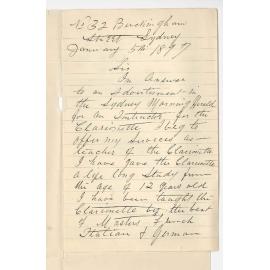 No 32 Buckingham
Street Sydney
January 5th 1897
Sir
In Answer
to an Advertisement in
the Sydney Morning Herald
for an Instructor for the
Clarionette I beg to
offer my services as
teacher of the Clarionette
I have gave the Clarionette
a life long study from
the age of 12 years old
I have been taught the
Clarionette by the best
of Masters French
Italian & German